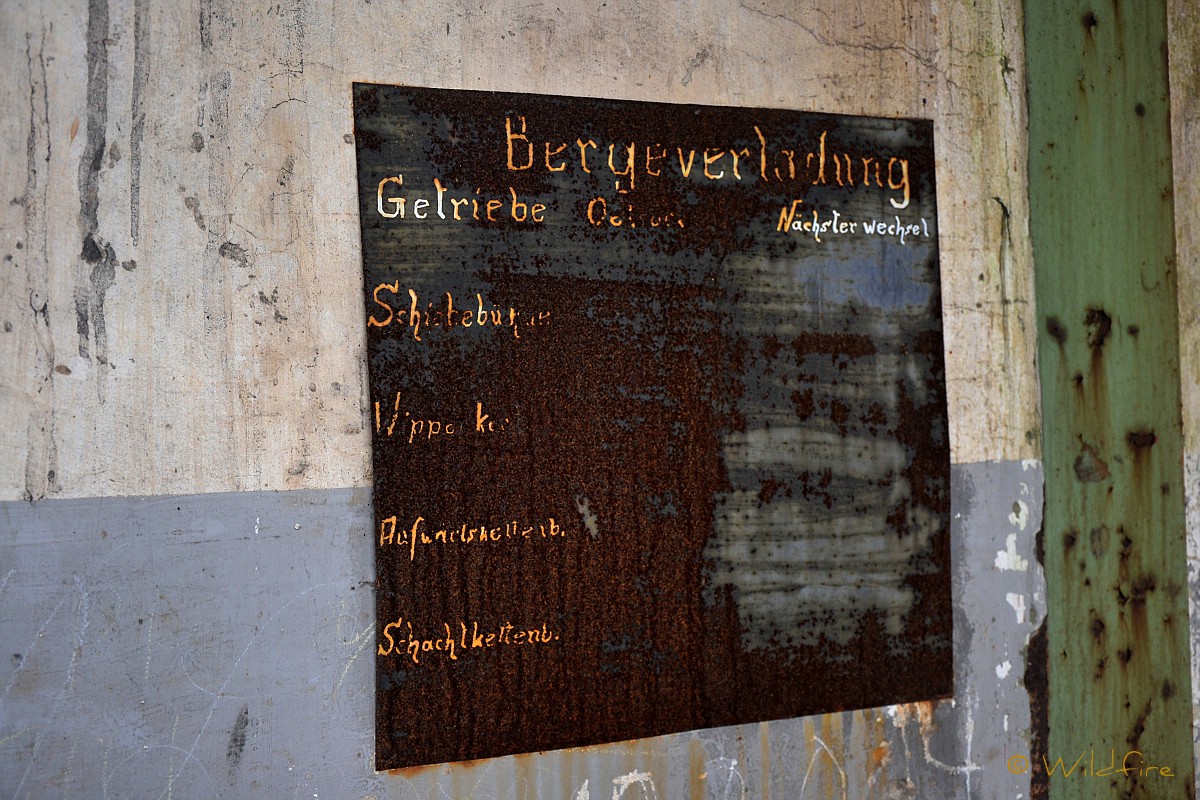 Bergeverladung
Getriebe Nächster wechsel
Schiebebühne
Aufwärtskettenb.
Schachtkettenb.
© Wildfire